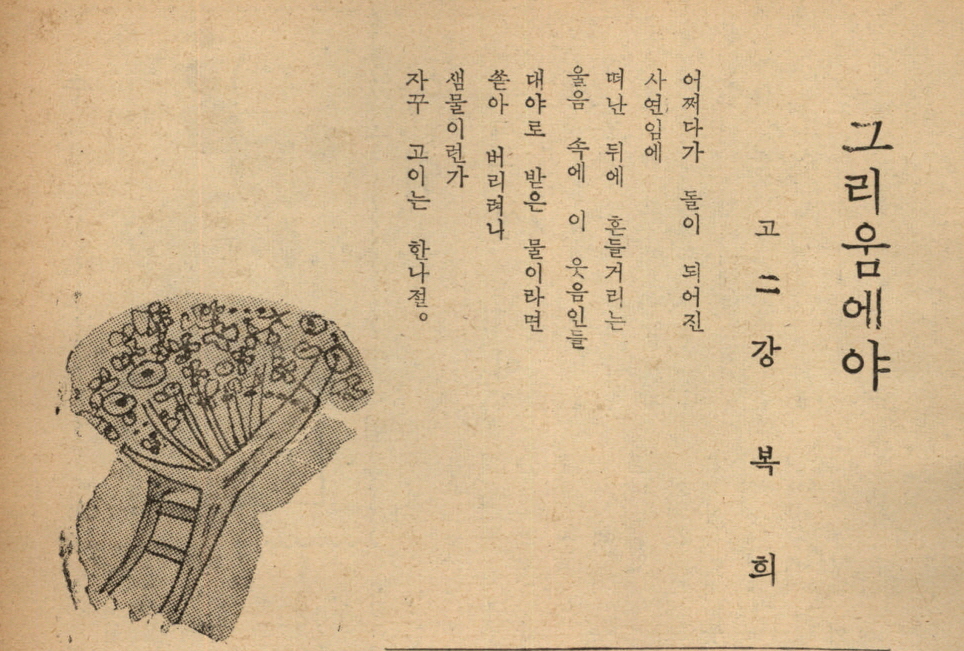 그리움에야
고 二 강 복 희
어쩌다가 돌이 되어진
사연임에
떠난 뒤에 흔들거리는
울음 속에 이 웃음인들
대야로 받은 물이라면
쏟아 버리려나
샘물이런가
자꾸 고이는 한나절。